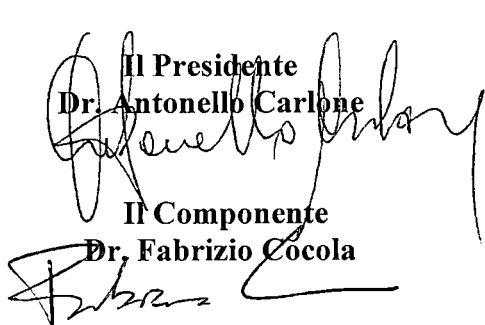 Il Presidente
Dr. Antonello Carlone
Il Componente
Dr. Fabrizio Cocola